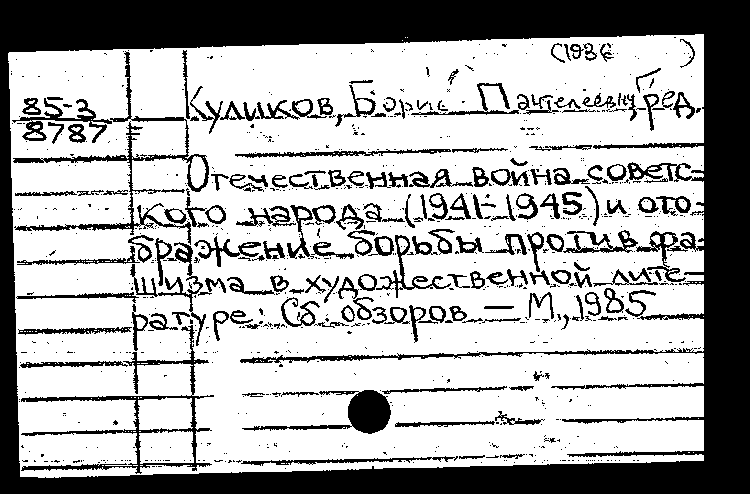 (1936 )
85-3
8787
Куликов, Борис Пантелеевич, ред.
Отечественная война советс-
кого народа (1941-1945) и ото-
бражение борьбы против фа-
шизма в художественной лите-
ратуре: Сб. обзоров — М., 1985